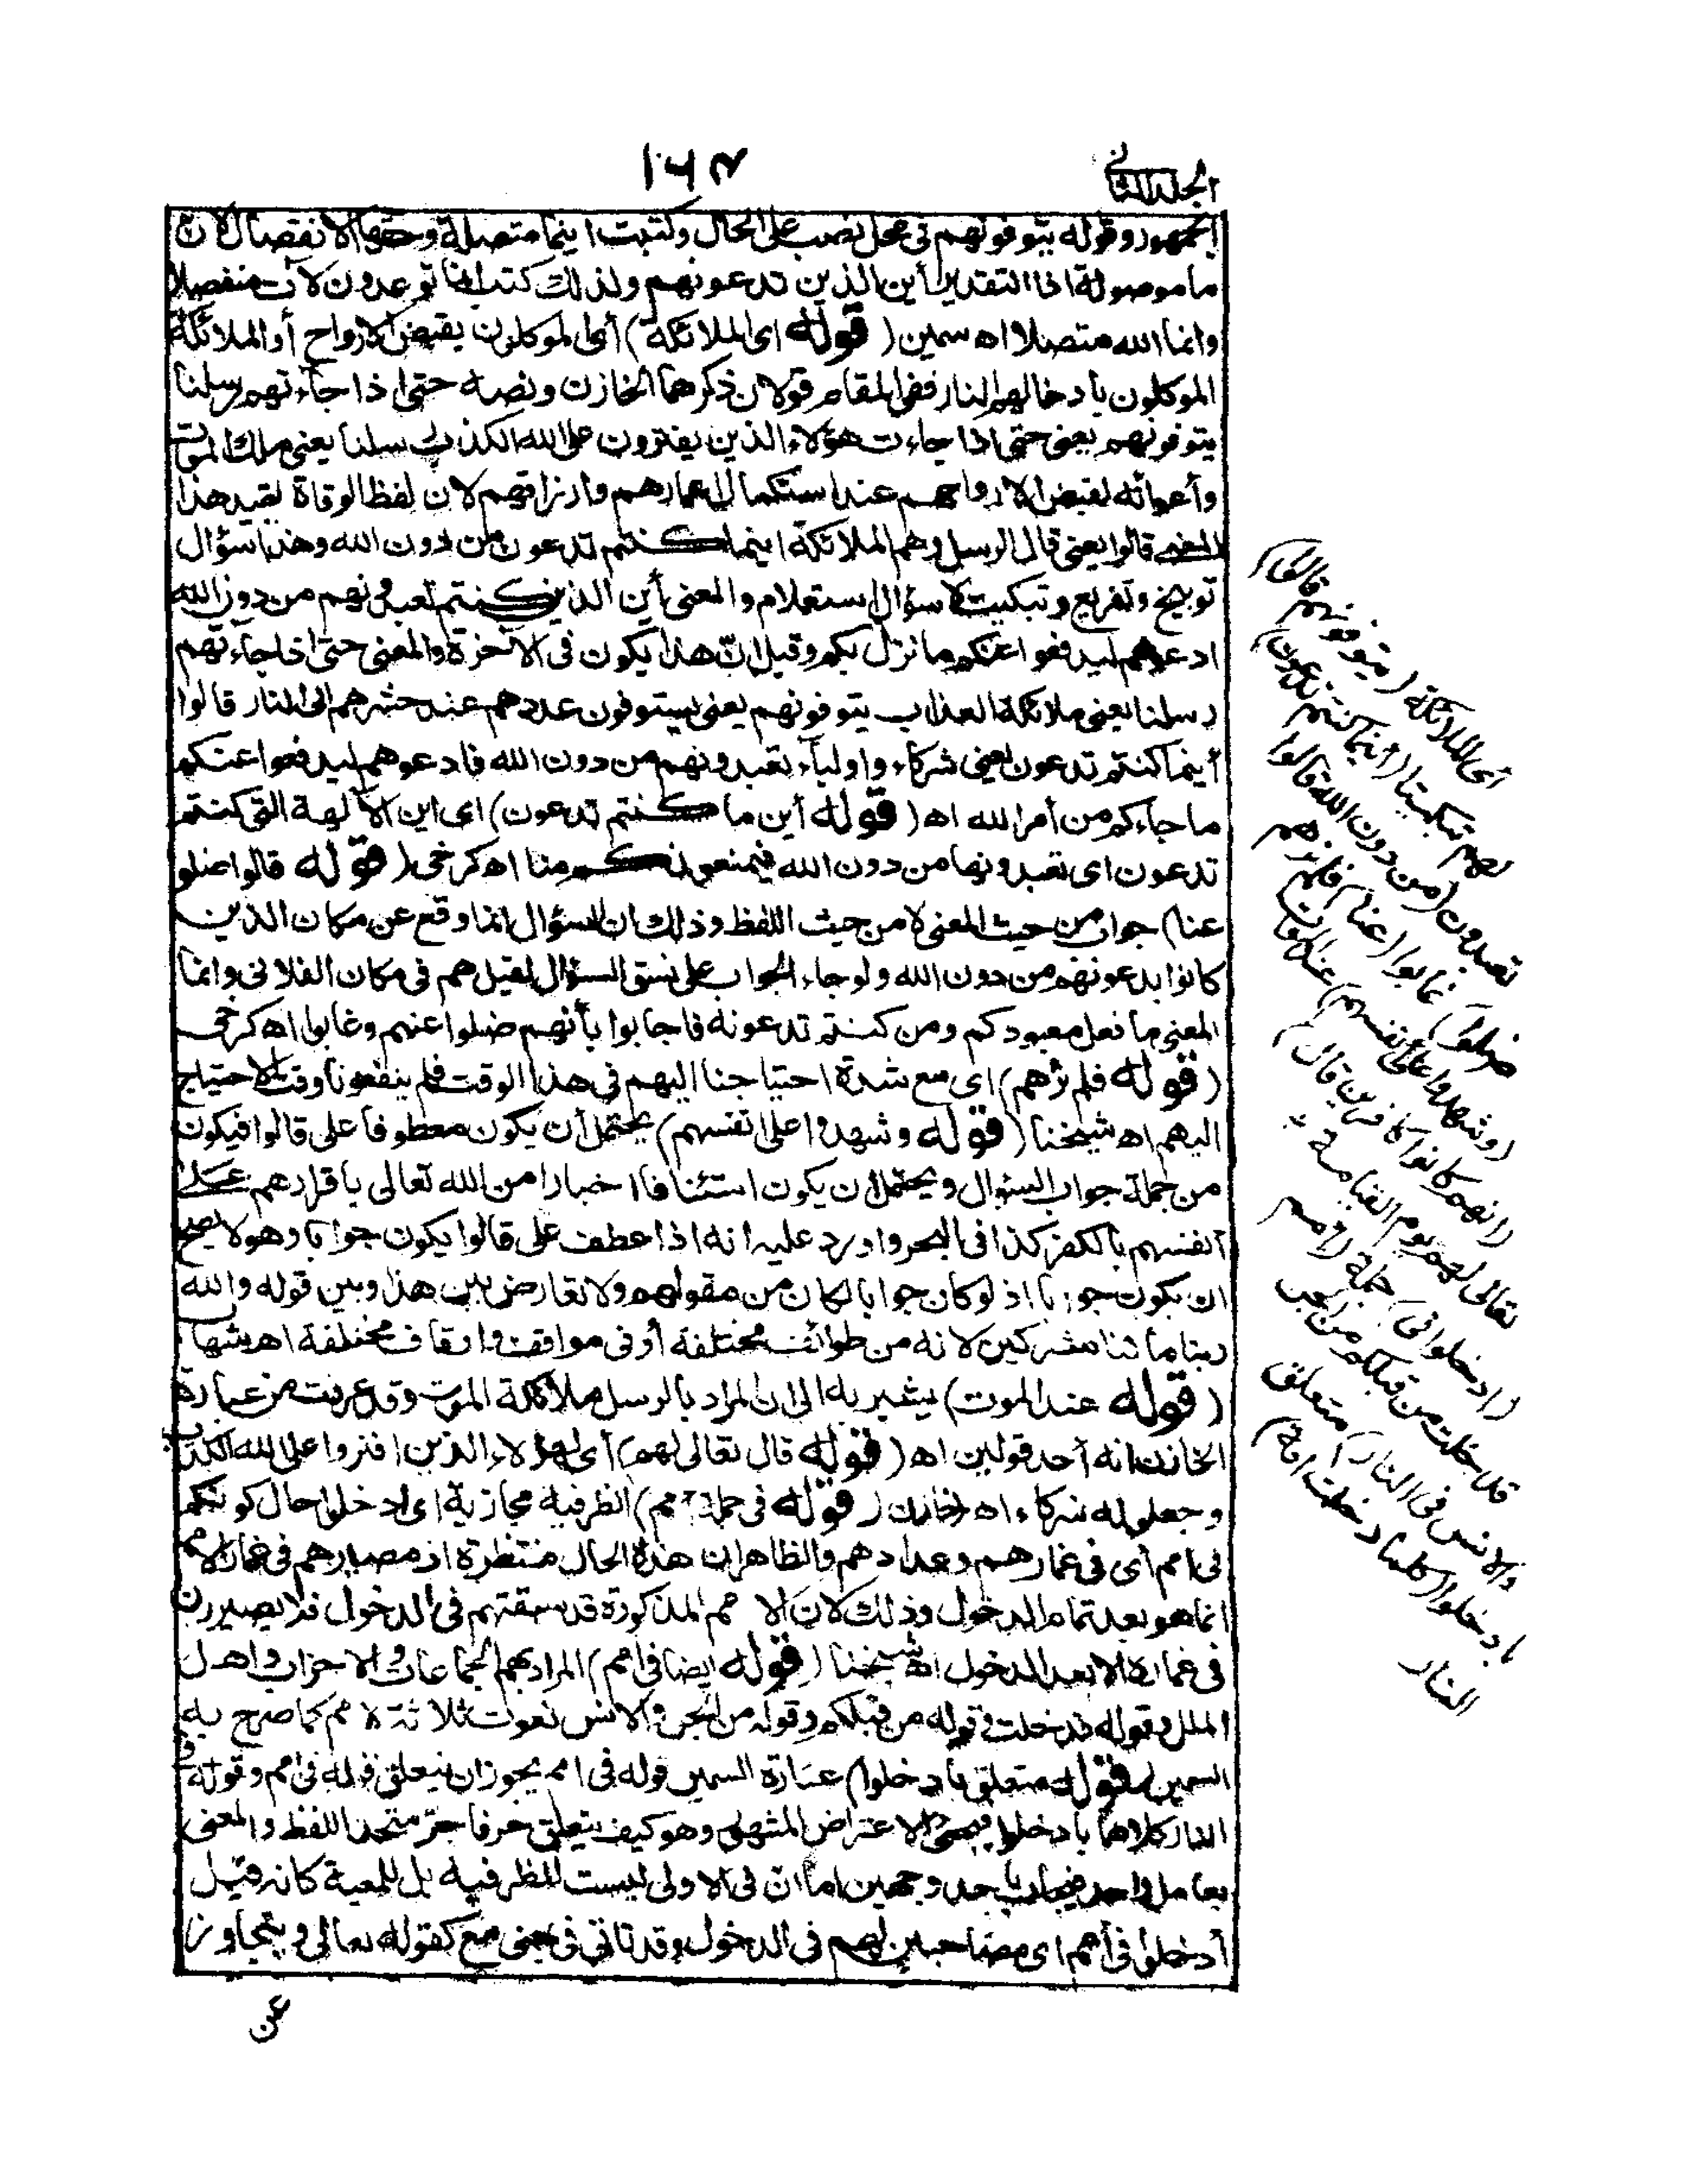 الجلد الثاني
١٦٣
الجمهور وقوله يتوفونهم فى محل نصب على الحال وكتبت اينما متصلة وحقها الانفصال لان
ما موصولة اذا التقدير أين الذين تدعونهم ولذلك كتب انما توعدون لآت منفصلا
وانما الله متصلا اه سمين (قوله اى الملائكة) أى الموكلون بقبض الارواح أو الملائكة
الموكلون بادخالهم النار ففى المقام قولان ذكرهما الخازن ونصه حتى اذا جاءتهم رسلنا
يتوفونهم يعنى حتى اذا جاءت هؤلاء الذين يفترون على الله الكذب رسلنا يعنى ملك الموت
وأعوانه لقبض الارواحهم عند استكمال اعمارهم وارزاقهم لان لفظ الوفاة يفيد هذا
المعنى قالوا يعنى قال الرسل وهم الملائكة اينما كنتم تدعون من دون الله وهذا سؤال
توبيخ وتقريع وتبكيت لا سؤال استعلام والمعنى أين الذين كنتم تعبدونهم من دون الله
ادعوهم ليدفعوا عنكم ما نزل بكم وقيل ان هذا يكون فى الآخرة والمعنى حتى اذا جاءتهم
رسلنا يعنى ملائكة العذاب يتوفونهم يعنى يستوفون عددهم عند حشرهم الى النار قالوا
أينما كنتم تدعون يعنى شركاء واولياء تعبدونهم من دون الله فادعوهم ليدفعوا عنكم
ما جاءكم من أمر الله اه (قوله أين ما كنتم تدعون) اى اين الآلهة التى كنتم
تدعون اى تعبدونها من دون الله فيمنعونكم منا اه كرخى (قوله قالوا ضلوا
عنا) جواب من حيث المعنى لا من حيث اللفظ وذلك ان السؤال انما وقع عن مكان الذين
كانوا يدعونهم من دون الله ولو جاء الجواب على نسق السؤال لقيل هم فى مكان الفلانى وانما
المعنى ما فعل معبودكم ومن كنتم تدعونه فاجابوا بأنهم ضلوا عنهم وغابوا اه كرخى
(قوله فلم نرهم) اى مع شدة احتياجنا اليهم فى هذا الوقت فلم ينفعونا وقت الاحتياج
اليهم اه شيخنا (قوله وشهدوا على انفسهم) يحتمل أن يكون معطوفا على قالوا فيكون
من جملة جواب السؤال ويحتمل ان يكون استئنافا اخبارا من الله تعالى باقرارهم على
انفسهم بالكفر كذا فى البحر واورد عليه انه اذا عطف على قالوا يكون جوابا وهو لا يصح
ان يكون جوابا اذ لو كان جوابا لكان من مقولهم ولا تعارض بين هذا وبين قوله والله
ربنا ما كنا مشركين لانه من طوائف مختلفة أو فى مواقف واوقات مختلفة اه شهاب
(قوله عند الموت) يشير به الى ان المراد بالرسل ملائكة الموت وقد عرفت من عبارة
الخازن انه أحد قولين اه (قوله قال تعالى لهم) أى لهؤلاء الذين افتروا على الله الكذب
وجعلوا له شركاء اه خازن (قوله فى جملة امم) الظرفية مجازية اى ادخلوا حال كونكم
فى امم أى فى غمارهم وعدادهم والظاهر ان هذه الحال منتظرة اذ مصيارهم فى غمار الامم
انما هو بعد تمام الدخول وذلك لان الامم المذكورة قد سبقتهم فى الدخول فلا يصيرون
فى غمارها الا بعد الدخول اه شيخنا (قوله ايضا فى امم) المراد بهم الجماعات والاحزاب واهل
الملل وقوله قد خلت وقوله من قبلكم وقوله من الجن والانس نعوت ثلاثة لامم كما صرح به
السمين (قوله متعلق بادخلوا) عبارة السمين قوله فى امم يجوز ان يتعلق قوله فى امم وقوله فى
النار كلاهما بادخلوا فيجىء الاعتراض المشهور وهو كيف يتعلق حرفا جر متحدا اللفظ والمعنى
بعامل واحد فيجاب باحد وجهين اما ان فى الاولى ليست للظرفية بل للمعية كانه قيل
أدخلوا فى أمم اى مصاحبين لهم فى الدخول وقد تاتى فى بمعنى مع كقوله تعالى ويتجاوز
عن
أى الملائكة (يتوفونهم قالوا)
لهم تبكيتا (اينما كنتم تدعون)
تعبدون (من دون الله قالوا
ضلوا) غابوا (عنا) فلم نرهم
(وشهدوا على انفسهم) عند الموت
(انهم كانوا كافرين قال)
تعالى لهم يوم القيامة
(ادخلوا فى) جملة (امم
قد خلت من قبلكم من الجن
والانس فى النار) متعلق
بادخلوا (كلما دخلت امة)
النار